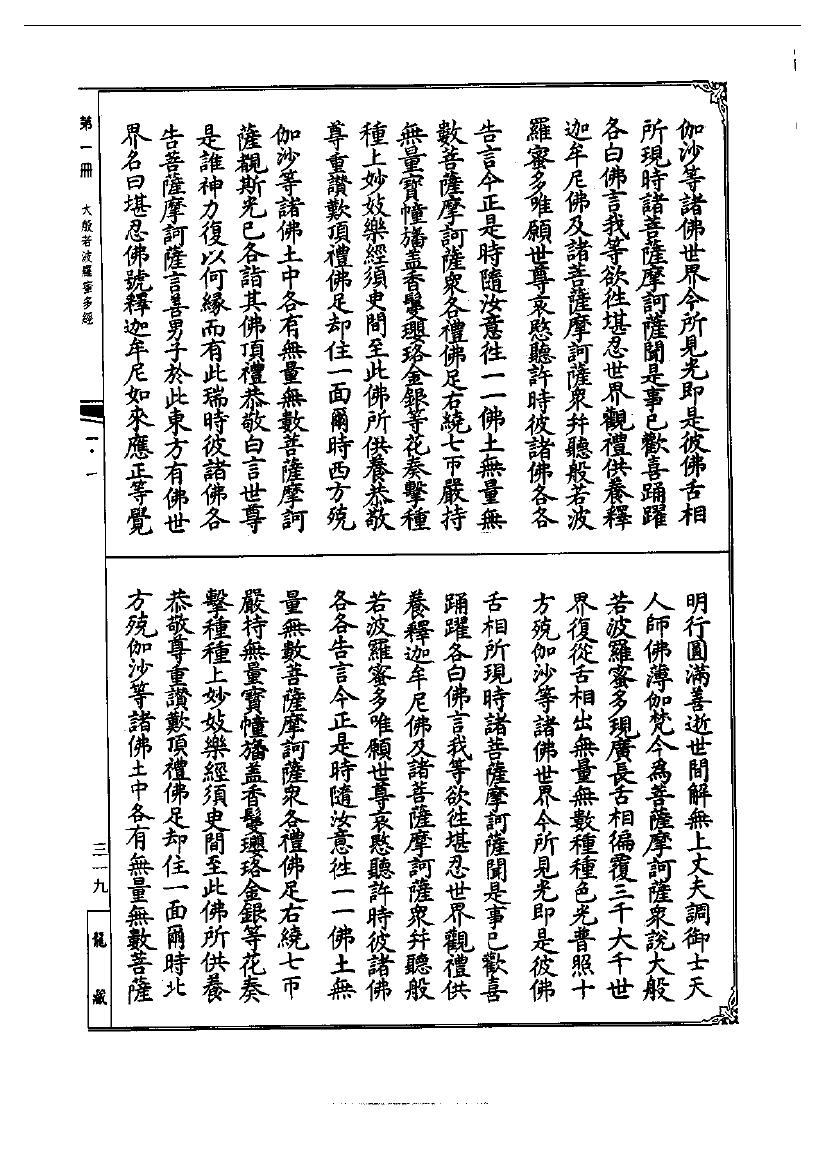 伽沙等諸佛世界今所見光即是彼佛舌相
所現時諸菩薩摩訶薩聞是事已歡喜踊躍
各白佛言我等欲往堪忍世界觀禮供養釋
迦牟尼佛及諸菩薩摩訶薩衆并聽般若波
羅蜜多唯願世尊哀愍聽許時彼諸佛各各
告言今正是時隨汝意往一一佛土無量無
數菩薩摩訶薩衆各禮佛足右繞七帀嚴持
無量寶幢旛盖香鬘瓔珞金銀等花奏擊種
種上妙妓樂經須臾間至此佛所供養恭敬
尊重讚歎頂禮佛足却住一面爾時西方殑
伽沙等諸佛土中各有無量無數菩薩摩訶
薩覩斯光已各詣其佛頂禮恭敬白言世尊
是誰神力復以何緣而有此瑞時彼諸佛各
告菩薩摩訶薩言善男子於此東方有佛世
界名曰堪忍佛號釋迦牟尼如來應正等覺
明行圓滿善逝世間解無上丈夫調御士天
人師佛薄伽梵今為菩薩摩訶薩衆說大般
若波羅蜜多現廣長舌相徧覆三千大千世
界復從舌相出無量無數種種色光普照十
方殑伽沙等諸佛世界今所見光即是彼佛
舌相所現時諸菩薩摩訶薩聞是事已歡喜
踊躍各白佛言我等欲往堪忍世界觀禮供
養釋迦牟尼佛及諸菩薩摩訶薩衆并聽般
若波羅蜜多唯願世尊哀愍聽許時彼諸佛
各各告言今正是時隨汝意往一一佛土無
量無數菩薩摩訶薩衆各禮佛足右繞七帀
嚴持無量寶幢旛盖香鬘瓔珞金銀等花奏
擊種種上妙妓樂經須臾間至此佛所供養
恭敬尊重讚歎頂禮佛足却住一面爾時北
方殑伽沙等諸佛土中各有無量無數菩薩
第一冊 大般若波羅蜜多經
一·一
三一九
龍藏